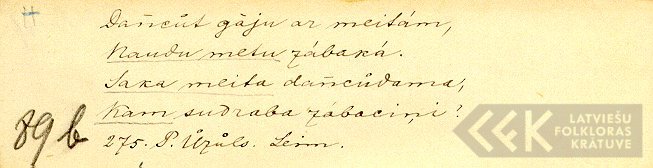 Dañcůt gāju ar meitám,
Naudu metu zábaká.
Saka meita dañcůdama,
Kam sudraba zábaciņi?
89 b
275. P. Ůzůls. Leim.
LATVIEŠU
FOLKLORAS
KRĀTUVE